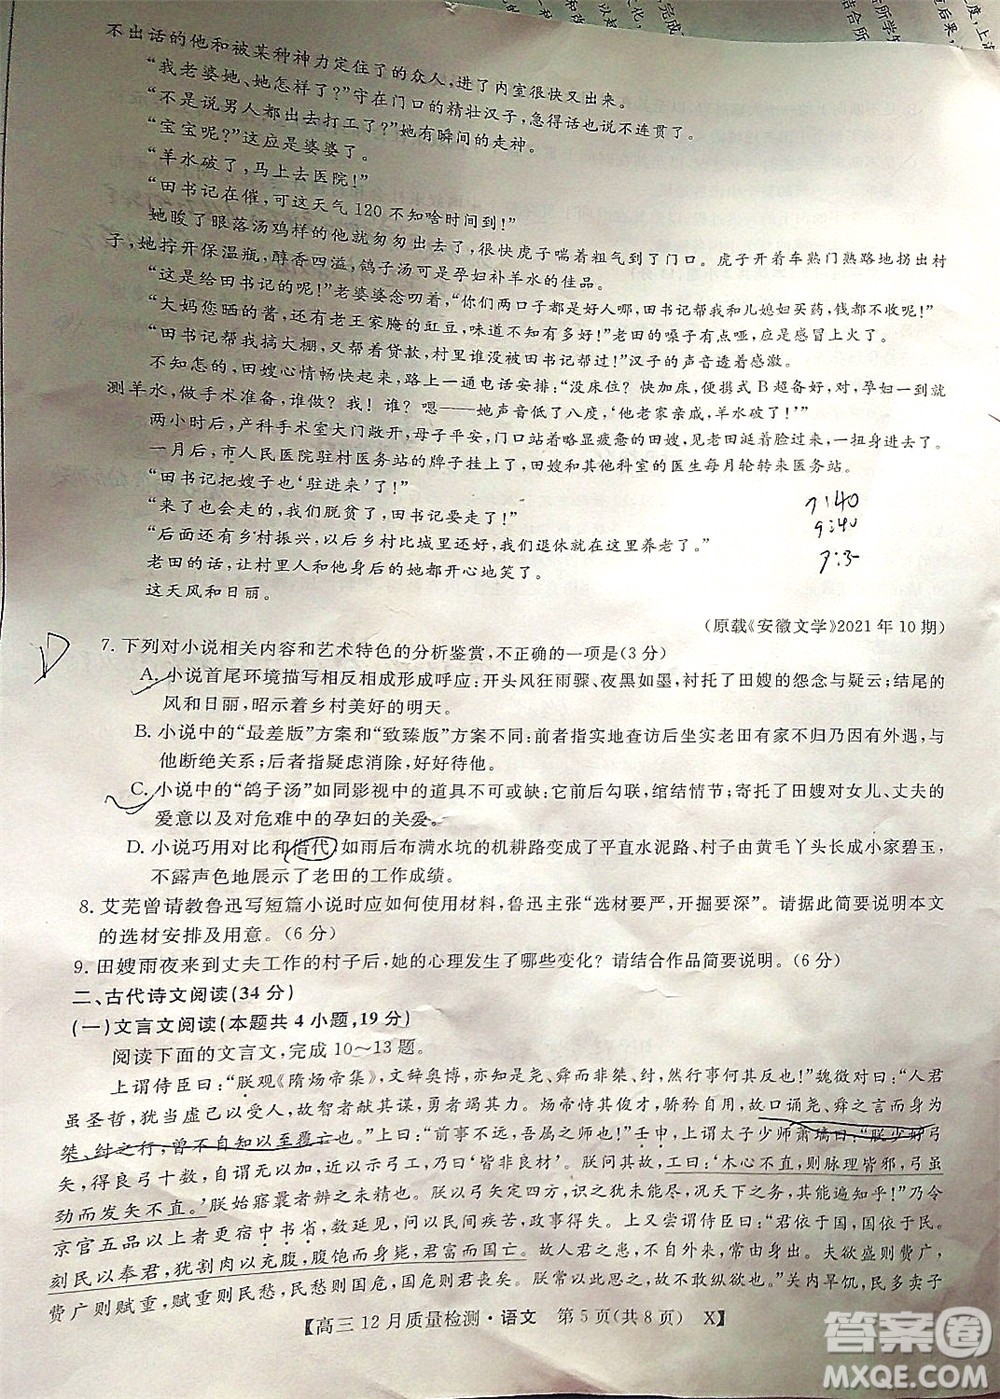 不出话的他和被某种神力定住了的众人,进了内室很快又出来。
“我老婆她、她怎样了?”守在门口的精壮汉子,急得话也说不连贯了。
“不是说男人都出去打工了?”她有瞬间的走神。
“宝宝呢?”这应是婆婆了。
“羊水破了,马上去医院!”
“田书记在催,可这天气 120 不知啥时间到!”
她睃了眼落汤鸡样的他就匆匆出去了,很快虎子喘着粗气到了门口。虎子开着车熟门熟路地拐出村
子,她拧开保温瓶,醇香四溢,鸽子汤可是孕妇补羊水的佳品。
“这是给田书记的哪!”老婆婆念叨着,“你们两口子都是好人哪,田书记帮我和儿媳妇买药,钱都不收!”
“大妈您晒的酱,还有老王家腌的豇豆,味道不知有多好!”老田的嗓子有点哑,应是感冒上火了。
“田书记帮我搞大棚,帮着贷款,村里路也是田书记帮过!”汉子的声音透着感激。
不知怎的,田嫂心情畅快起来,路上一通电话安排:“没床位?快加床,便携式 B 超备好,对,孕妇一到
测羊水,做手术准备,谁做?我!谁?嗯——她声音低了八度,‘他老家亲戚,羊水破了!’”
两小时后,产科手术室大门敞开,母子平安,门口站着略显疲惫的田嫂,见老田延着脸,一扭身进去了。
一月后,市人民医院驻村医务站的牌子挂上了,田嫂和其他科室的医生每月轮转来医务站。
“田书记把嫂子也‘驻进来’了!”
“来了也会走的,我们脱贫了,田书记要走了!”
“后面还有乡村振兴,以后乡村比城里还好呢,我们退休就在这里养老了。”
老田的话,让村里人和他身后的她都开心地笑了。
这天风和日丽。
7:40
9:40
7:5
(原载《安徽文学》2021 年 10 期)
7. 下列对小说相关内容和艺术特色的分析鉴赏,不正确的一项是(3 分)
A. 小说首尾环境描写相反相成形成呼应:开头风狂雨骤、夜黑如墨,衬托了田嫂的怨念与疑云;结尾的
风和日丽,昭示着乡村美好的明天。
B. 小说中的“最差版”方案和“致臻版”方案不同:前者指实地查访后坐实老田有家不归乃因有外遇,与
他断绝关系;后者指疑虑消除,好好待他。
C. 小说中的“鸽子汤”如同影视中的道具不可或缺:它前后勾联,绾结情节;寄托了田嫂对女儿、丈夫的
爱意以及对危难中的孕妇的关爱。
D. 小说巧用对比和借代,如雨后布满水坑的机耕路变成了平直水泥路、村子由黄毛丫头长成小家碧玉,
不露声色地展示了老田的工作成绩。
8. 艾芜曾请教鲁迅写短篇小说时应如何使用材料,鲁迅主张“选材要严,开掘要深”。请据此简要说明本文
的选材安排及用意。(6 分)
9. 田嫂雨夜来到丈夫工作的村子后,她的心理发生了哪些变化?请结合作品简要说明。(6 分)
二、古代诗文阅读(34 分)
(一)文言文阅读(本题共 4 小题,19 分)
阅读下面的文言文,完成 10～13 题。
上谓侍臣曰:“朕观《隋炀帝集》,文辞奥博,亦知是尧、舜而非桀、纣,然行事何其反也!”魏徵对曰:“人君
虽圣哲,犹当虚己以受人,故智者献其谋,勇者竭其力。炀帝恃其俊才,骄矜自用,故口诵尧、舜之言而身为
桀、纣之行,曾不自知以至覆亡也。”上曰:“前事不远,吾属之师也!”壬申,上谓太子少师萧瑀曰:“朕少好弓
矢,得良弓十数,自谓无以加,近以示弓工,乃曰‘皆非良材’。朕问其故,工曰:‘木心不直,则脉理皆邪,弓虽
劲而发矢不直。’朕始寤曩者辨之未精也。朕以弓矢定四方,识之犹未能尽,况天下之务,其能遍知乎!”乃令
京官五品以上更宿中书省,数延见,问以民间疾苦,政事得失。上又尝谓侍臣曰:“君依于国,国依于民。
刻民以奉君,犹割肉以充腹,腹饱而身毙,君富而国亡。故人君之患,不自外来,常由身出。夫欲盛则费广,
费广则赋重,赋重则民愁,民愁则国危,国危则君丧矣。朕常以此思之,故不敢纵欲也。”关内旱饥,民多卖子
【高三 12 月质量检测·语文 第 5 页(共 8 页) X】
答案圈
MXQE.COM